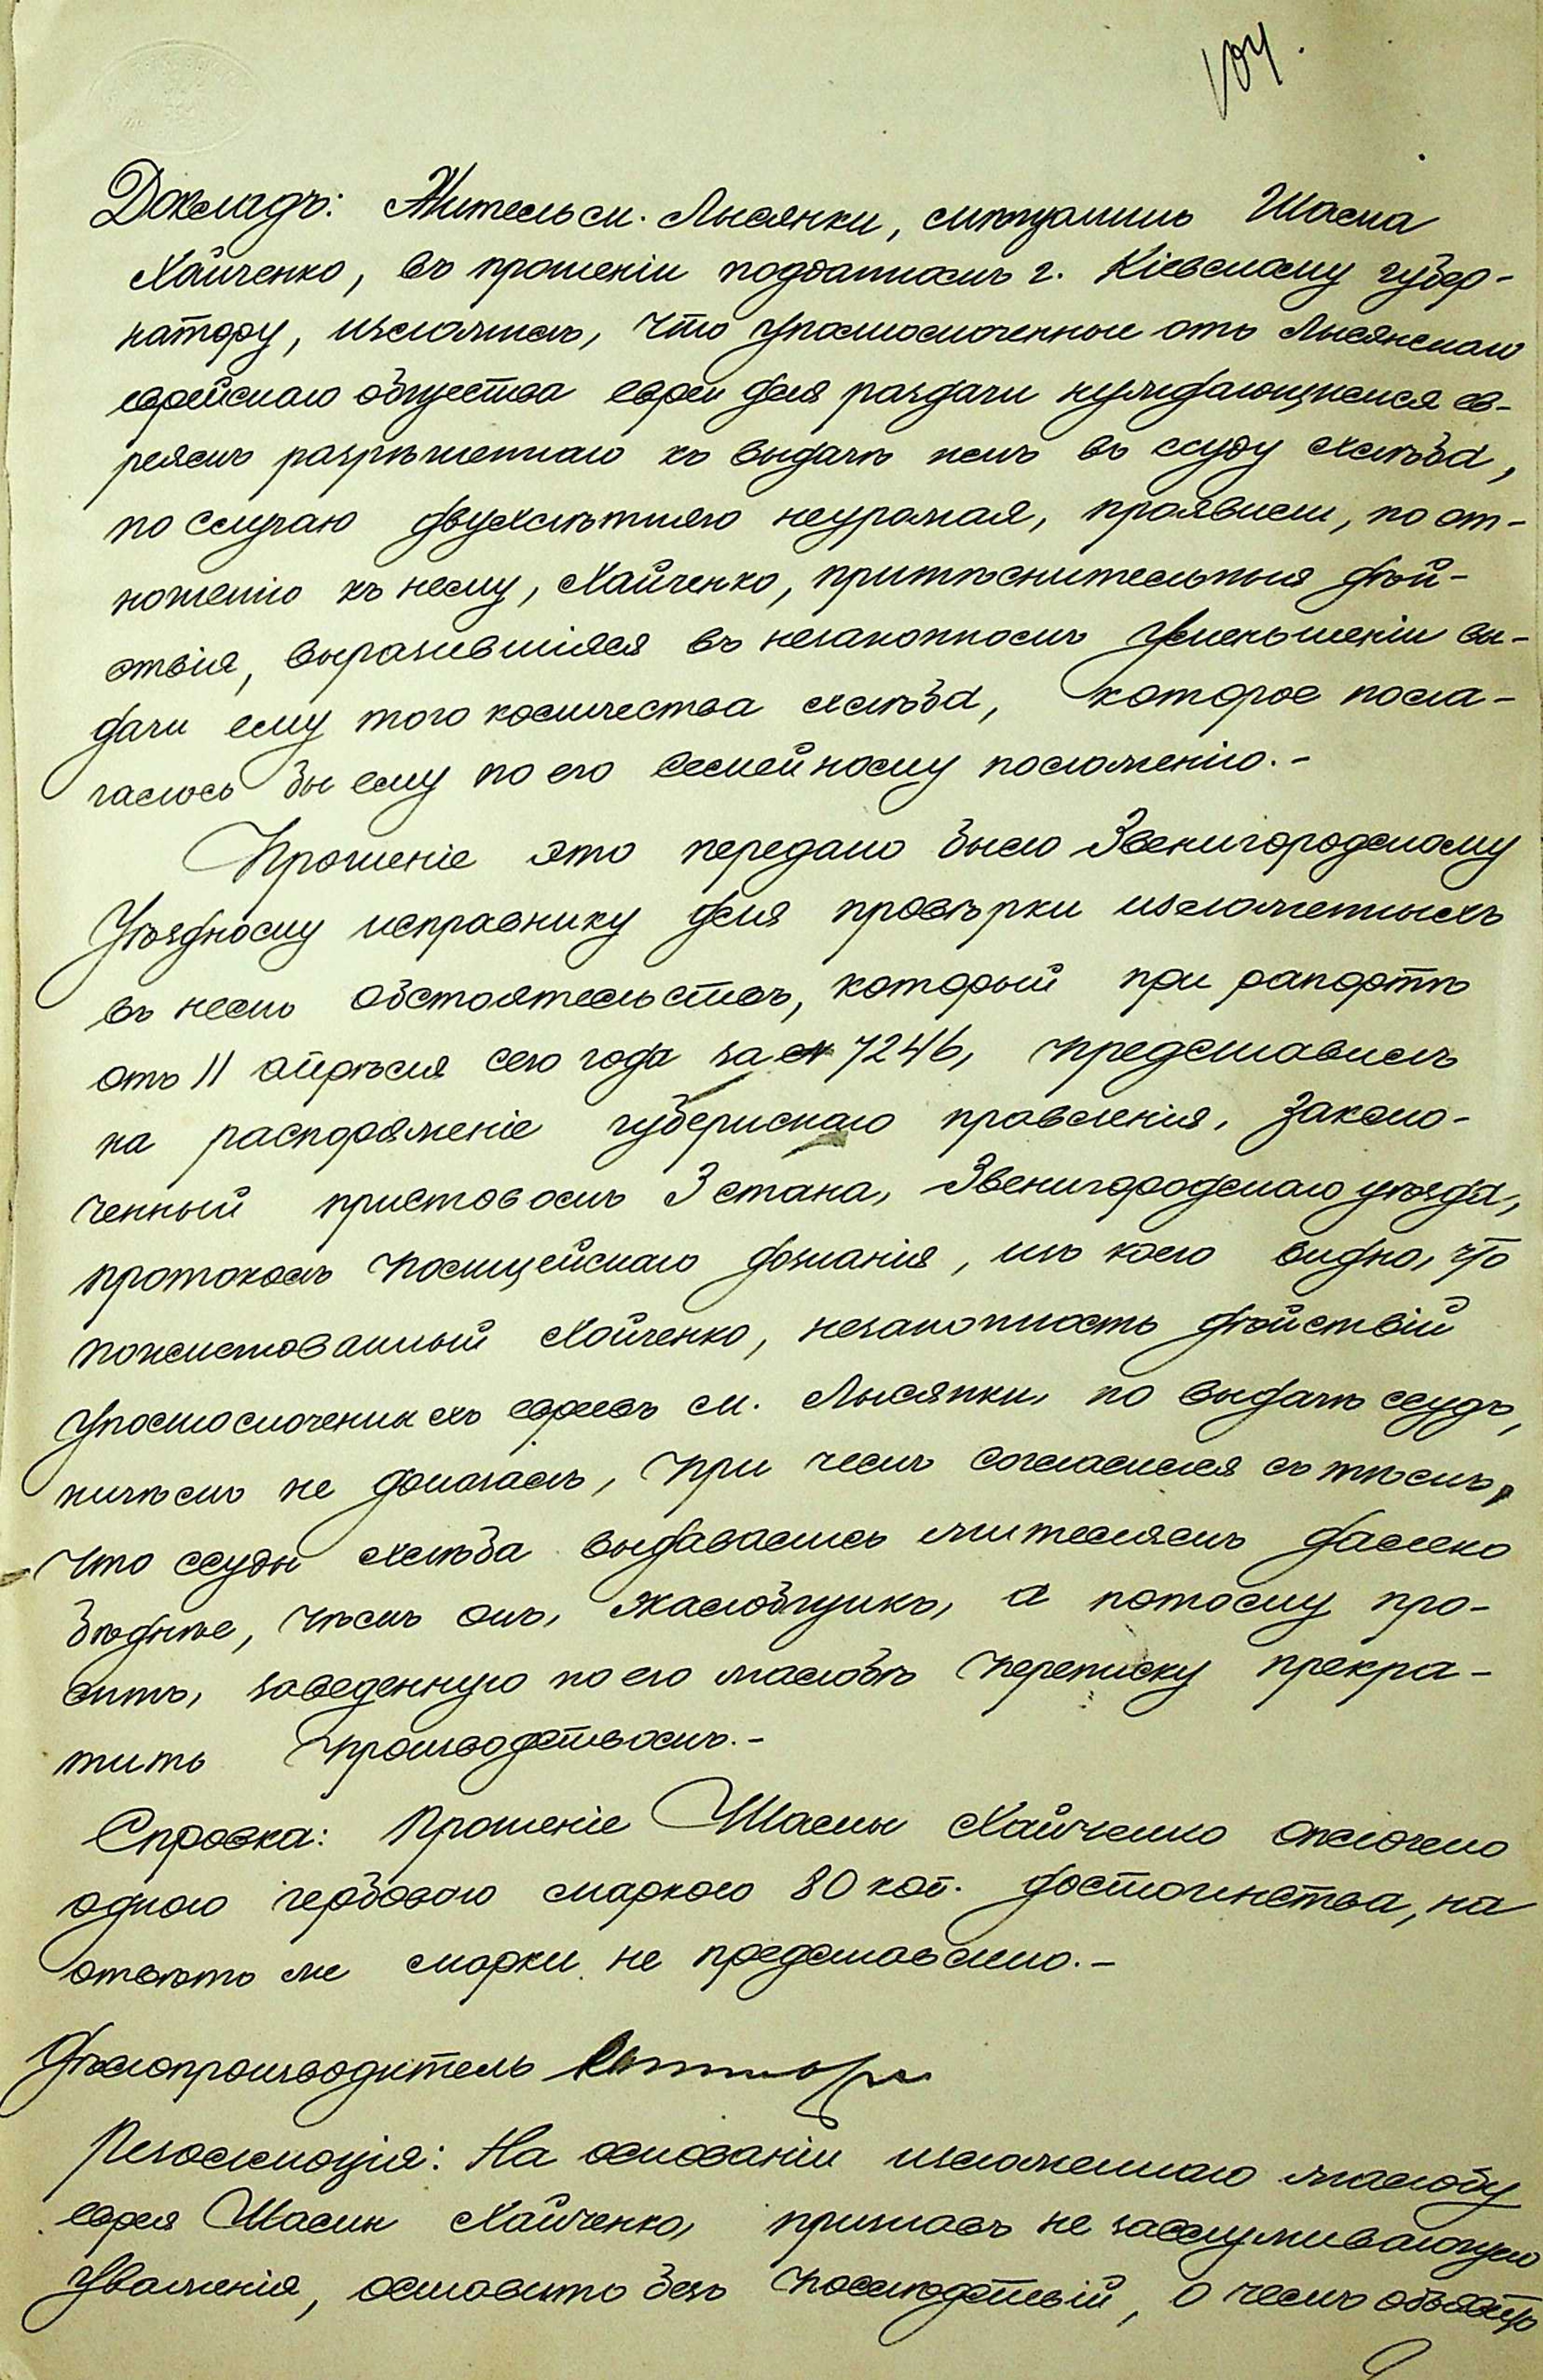 104.
Докладъ: Житель м. Лысянки, мѣщанинъ Шлема
Хайченко, въ прошеніи поданномъ г. Кіевскому губер-
натору, изложилъ, что уполномоченные отъ Лысянскаго
еврейскаго общества евреи для раздачи нуждающимся ев-
реямъ разрѣшеннаго къ выдачѣ имъ въ ссуду хлѣба,
по случаю двухлѣтняго неурожая, проявили, по от-
ношенію къ нему, Хайченко, притѣснительныя дѣй-
ствія, выразившіяся въ незаконномъ уменьшеніи вы-
дачи ему того количества хлѣба, которое пола-
галось бы ему по его семейному положенію.-
Прошеніе это передано было Звенигородскому
Уѣздному исправнику для провѣрки изложенныхъ
въ немъ обстоятельствъ, который при рапортѣ
отъ 11 апрѣля сего года за № 7246, представилъ
на распоряженіе губернскаго правленія, заклю-
ченный приставомъ 3 стана, Звенигородскаго уѣзда,
протоколъ полицейскаго дознанія, изъ коего видно, что
поименованный Хайченко, незаконность дѣйствій
уполномоченныхъ евреевъ м. Лысянки, по выдачѣ ссудъ,
ничѣмъ не доказалъ, при чемъ согласился съ тѣмъ,
что ссуды хлѣба выдавались жителямъ далеко
бѣднѣе, чѣмъ онъ, жалобщикъ, а потому про-
ситъ, заведенную по его жалобѣ переписку прекра-
тить производствомъ.-
Справка: Прошеніе Шлемы Хайченко оплочено
одною гербовою маркою 80 коп. достоинства, на
отвѣтъ же марки не представлено.-
Дѣлопроизводитель
Резолюція: На основаніи изложеннаго жалобу
еврея Шлемы Хайченко, признавъ не заслуживающую
уваженія, оставить безъ послѣдствій, о чемъ объявить